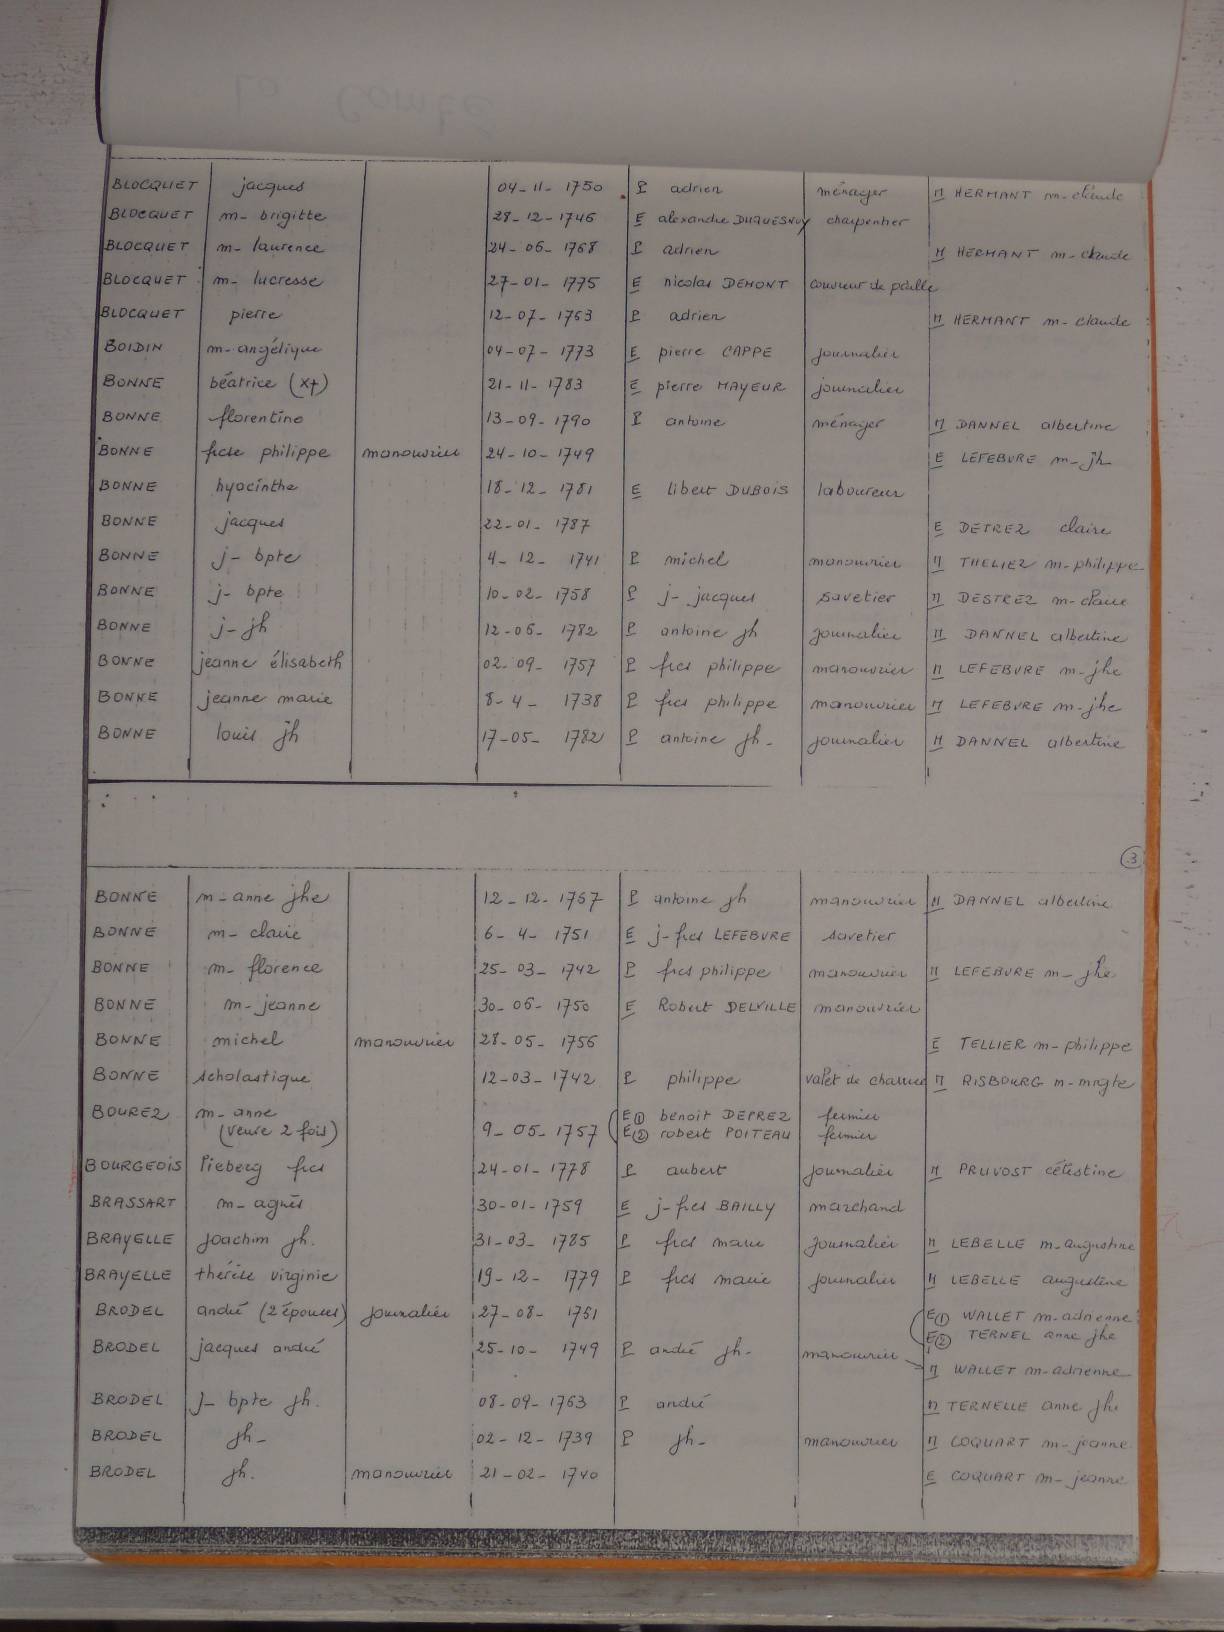 BLOCQUET jacques 04-11-1750 P adrien ménager M HERMANT m-claude
BLOCQUET m-brigitte 28-12-1746 E alexandre DUQUESNOY charpentier
BLOCQUET m-laurence 24-06-1768 P adrien M HERMANT m-claude
BLOCQUET m-lucresse 27-01-1775 E nicolas DEMONT couvreur de paille
BLOCQUET pierre 12-07-1763 P adrien M HERMANT m-claude
BOIDIN m-angélique 04-07-1773 E pierre CAPPE journalier
BONNE béatrice (x+) 21-11-1783 E pierre MAYEUR journalier
BONNE florentine 13-09-1790 P antoine ménager M DANNEL albertine
BONNE frcs philippe manouvrier 24-10-1749 E LEFEBVRE m-jh
BONNE hyacinthe 18-12-1781 E libert DUBOIS laboureur
BONNE jacques 22-01-1787 E DETREZ claire
BONNE j-bpte 4-12-1741 P michel manouvrier M THELIEZ m-philippe
BONNE j-bpte 10-02-1758 P j-jacques savetier M DESTREZ m-claire
BONNE j-jh 12-05-1782 P antoine jh journalier M DANNEL albertine
BONNE jeanne élisabeth 02-09-1757 P frcs philippe manouvrier M LEFEBVRE m-jhe
BONNE jeanne marie 8-4-1738 P frcs philippe manouvrier M LEFEBVRE m-jhe
BONNE louis jh 17-05-1782 P antoine jh- journalier M DANNEL albertine
3
BONNE m-anne jhe 12-12-1767 P antoine jh manouvrier M DANNEL albertine
BONNE m-claire 6-4-1751 E j-frcs LEFEBVRE savetier
BONNE m-florence 25-03-1742 P frcs philippe manouvrier M LEFEBVRE m-jhe
BONNE m-jeanne 30-06-1750 E Robert DELVILLE manouvrier
BONNE michel manouvrier 28-05-1756 E TELLIER m-philippe
BONNE scholastique 12-03-1742 P philippe valet de charrue M RISBOURG m-mrgte
BOUREZ m-anne E① benoit DEPREZ fermier
(veuve 2 fois) 9-05-1757 E② robert POITEAU fermier
BOURGEOIS Pieberg frcs 24-01-1778 P aubert journalier M PRUVOST célestine
BRASSART m-agnès 30-01-1759 E j-frcs BAILLY marchand
BRAYELLE joachim jh. 31-03-1785 P frcs marie journalier M LEBELLE m-augustine
BRAYELLE thérèse virginie 19-12-1779 P frcs marie journalier M LEBELLE augustine
BRODEL andré (2 épouses) journalier 27-08-1751 E① WALLET m-adrienne
E② TERNEL anne jhe
BRODEL jacques andré 25-10-1749 P andré jh- manouvrier M WALLET m-adrienne
BRODEL J-bpte jh. 08-09-1763 P andré M TERNELLE anne jhe
BRODEL jh- 02-12-1739 P jh- manouvrier M COQUART m-jeanne
BRODEL jh. manouvrier 21-02-1740 E COQUART m-jeanne